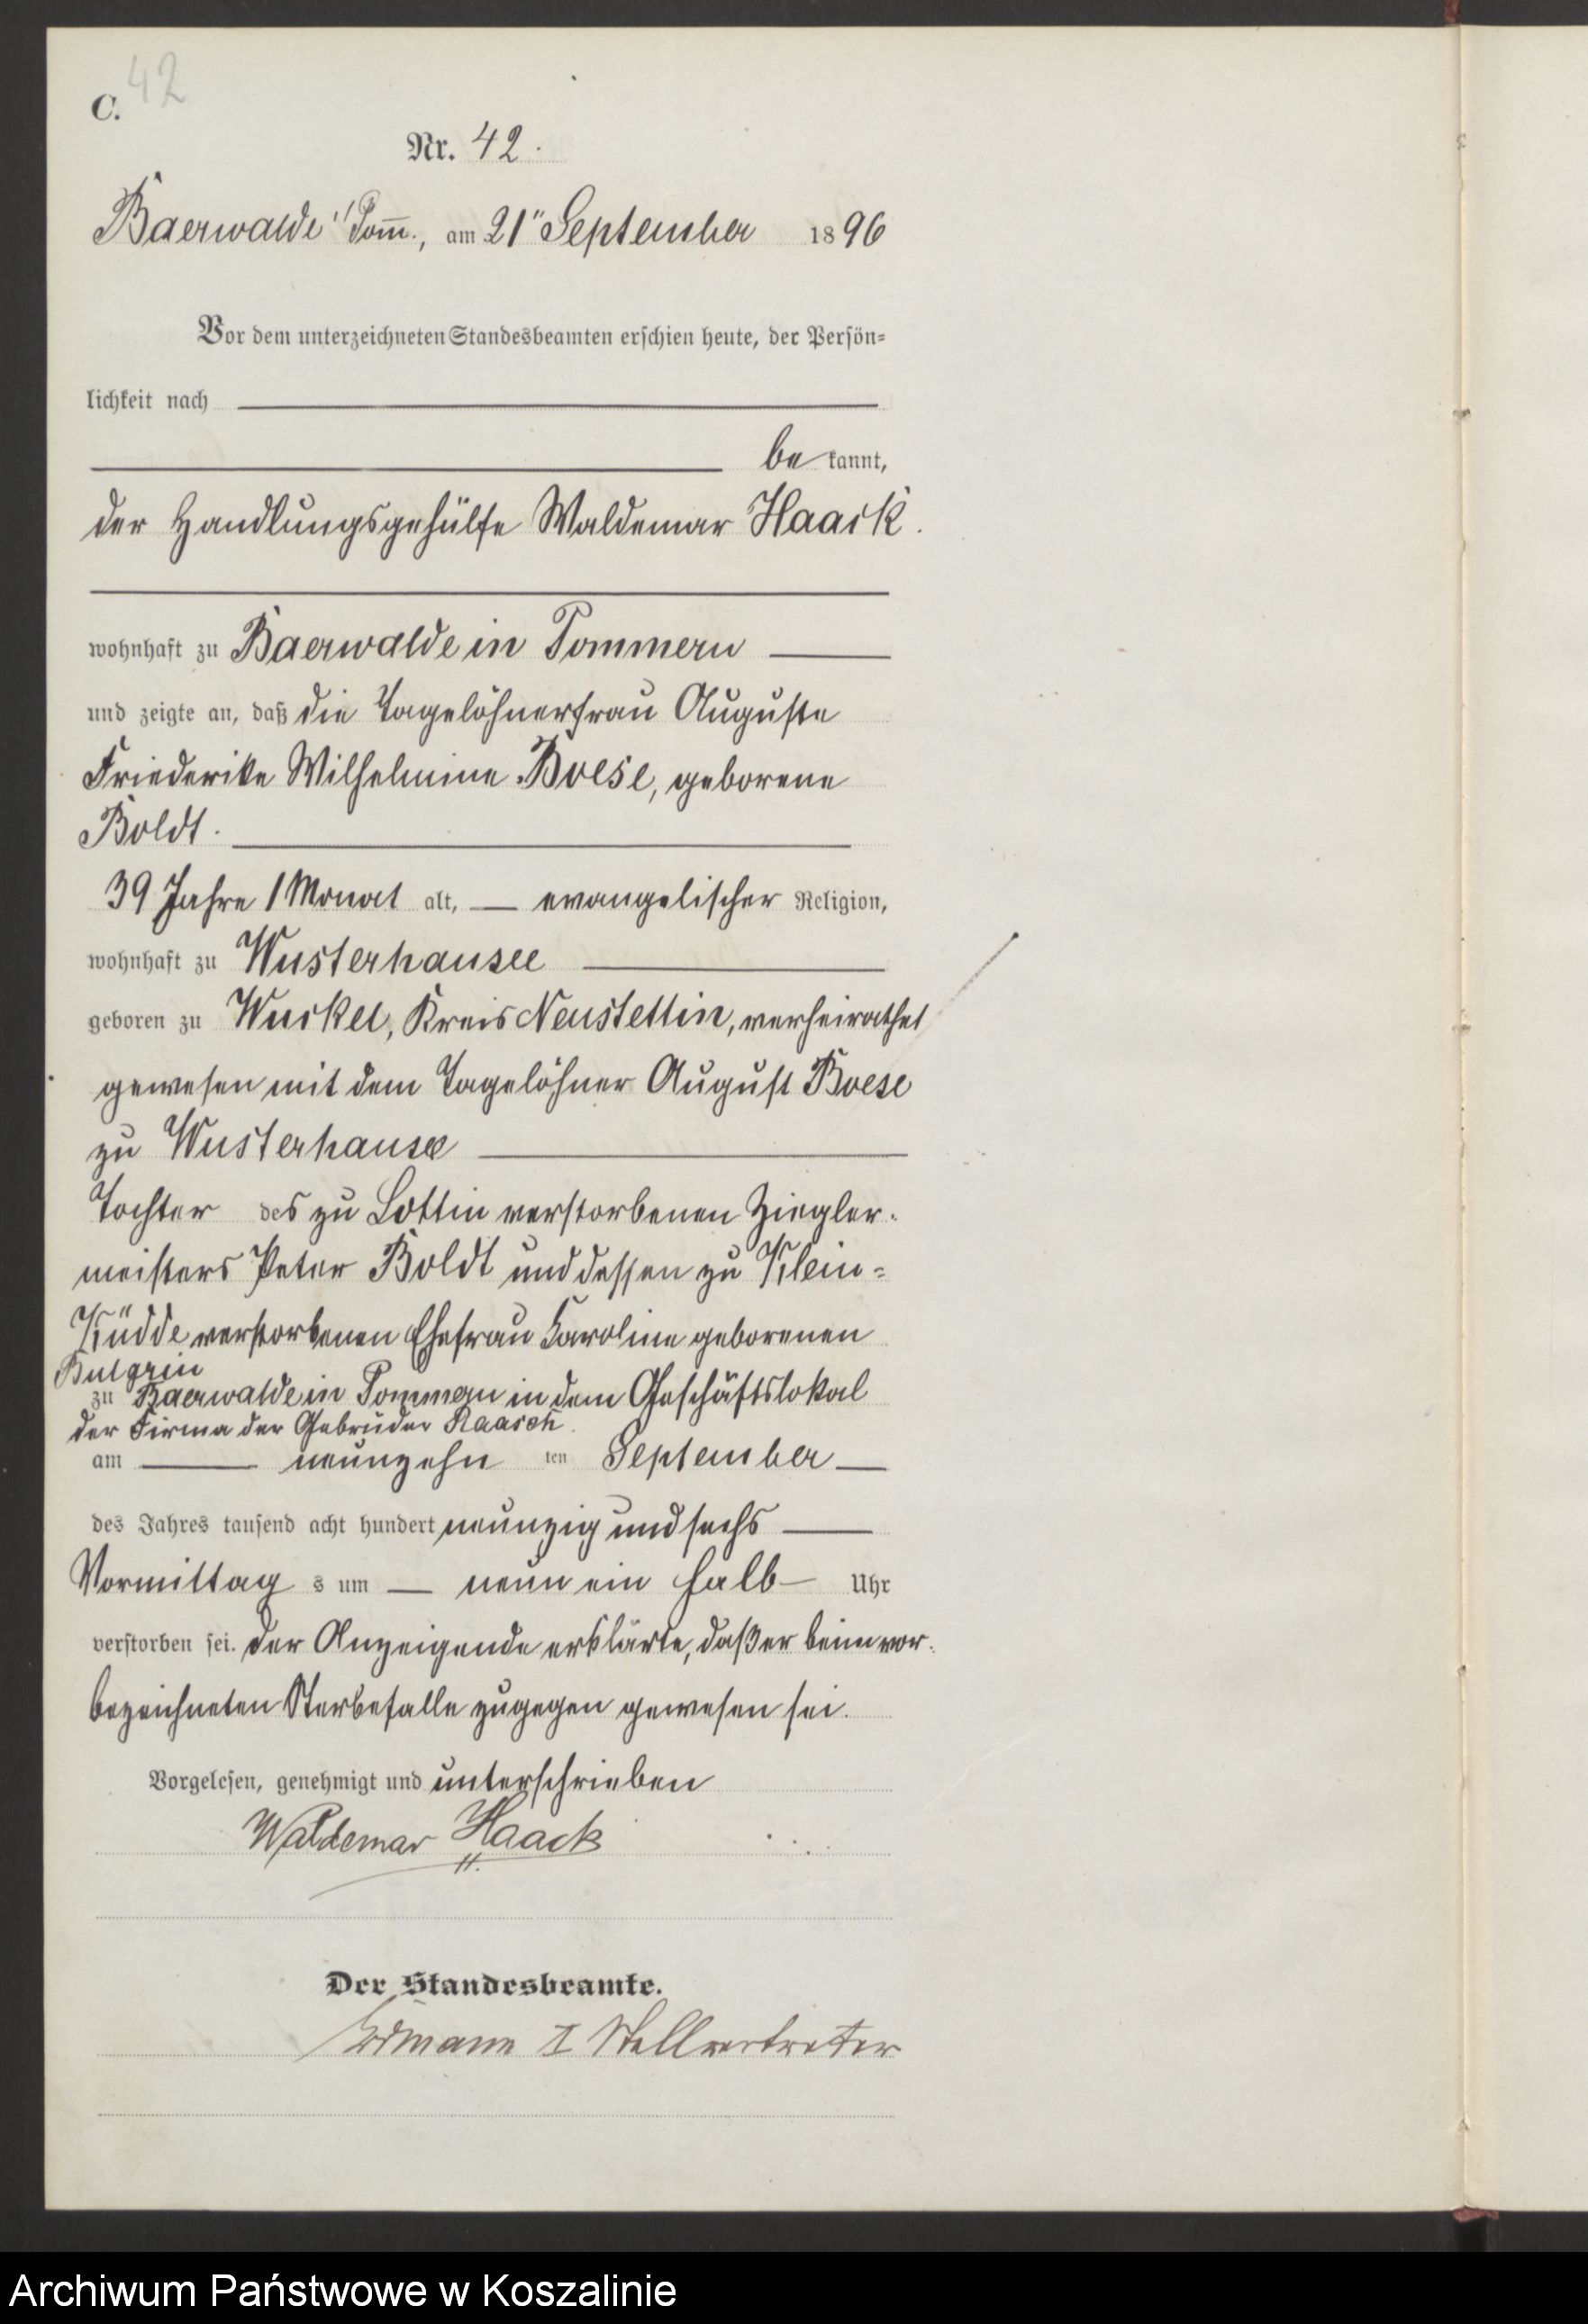 42
C.
Nr. 42.
Baerwalde i/Pom̅., am 21ten September 1896
Vor dem unterzeichneten Standesbeamten erschien heute, der Persön-
lichkeit nach
be kannt,
der Handlungsgehülfe Waldemar Haack.
wohnhaft zu Baerwalde in Pommern
und zeigte an, daß die Tagelöhnerfrau Auguste
Friederike Wilhelmine Boese, geborene
Boldt.
39 Jahre 1 Monat alt, evangelischer Religion,
wohnhaft zu Wusterhansee
geboren zu Wuckel, Kreis Neustettin, verheirathet
gewesen mit dem Tagelöhner August Boese
zu Wusterhanse
Tochter des zu Lottin verstorbenen Ziegler-
meisters Peter Boldt und dessen zu Klein-
Küdde verstorbenen Ehefrau Karoline geborenen
Bulgrin
zu Baerwalde in Pommern in dem Geschäftslokal
der Firma der Gebrüder Raasch.
am neunzehn ten September
des Jahres tausend acht hundert neunzig und sechs
Vormittag s um neun ein halb Uhr
verstorben sei. Der Anzeigende erklärte, daß er beim vor-
bezeichneten Sterbefalle zugegen gewesen sei.
Vorgelesen, genehmigt und unterschrieben
Waldemar Haack
Der Standesbeamte.
Erdmann II Stellvertreter
Archiwum Państwowe w Koszalinie